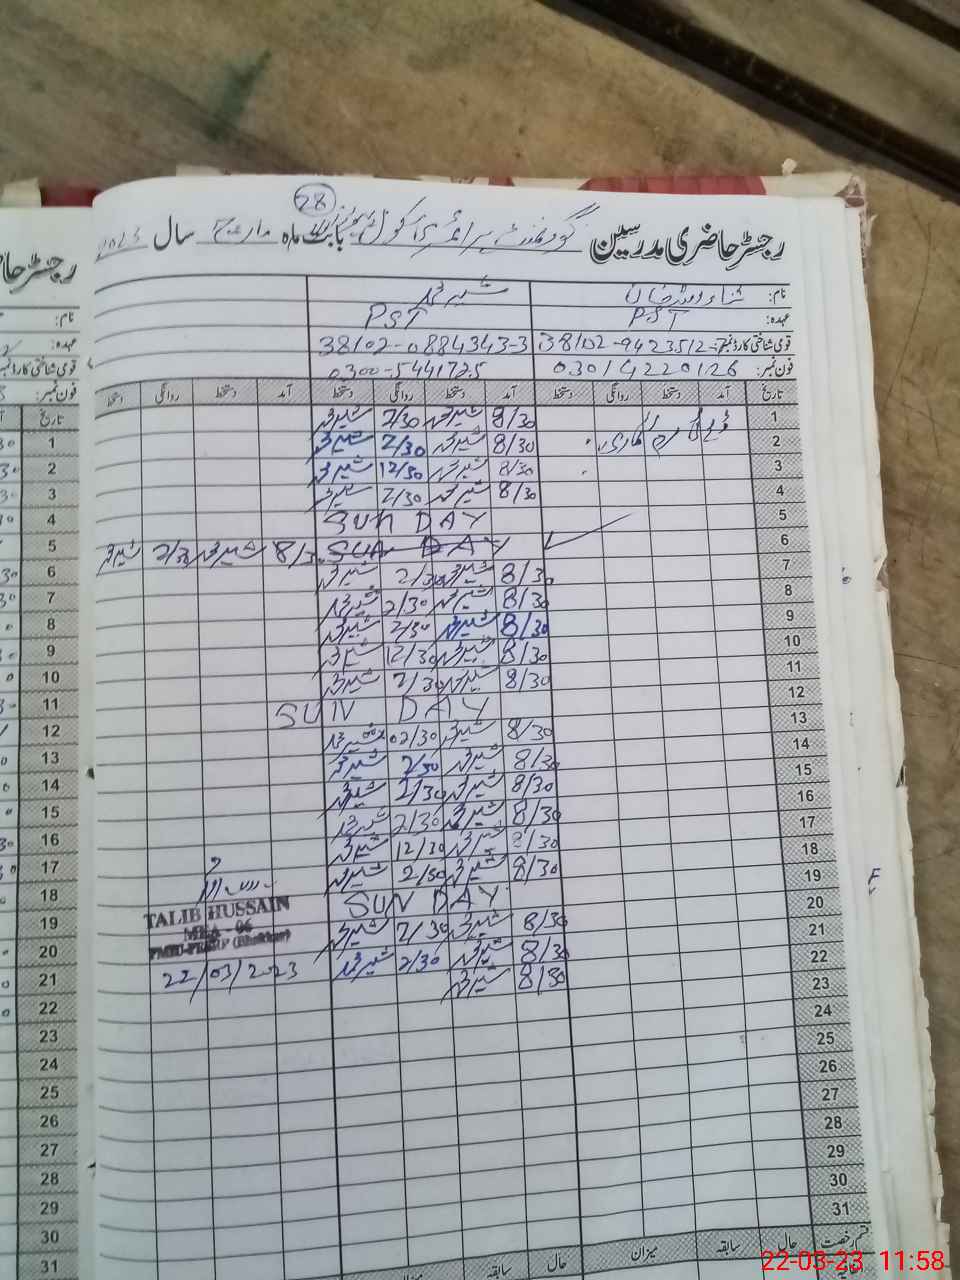 28
رجسٹر حاضری مدرسین گورنمنٹ پرائمری سکول بابت ماہ مارچ سال 2023
نام: ثناء اللہ خان شیر محمد
عہدہ: PST PST
قومی شناختی کارڈ نمبر: 38102-9423512-7 38102-0884343-3
فون نمبر: 03014220126 0300-5441725
تاریخ آمد دستخط روانگی دستخط آمد دستخط روانگی دستخط آمد دستخط روانگی دستخط
1 8/30 شیر محمد 2/30 شیر محمد
2 8/30 شیر محمد 2/30 شیر محمد
3 8/30 شیر محمد 12/30 شیر محمد
4 8/30 شیر محمد 2/30 شیر محمد
5 SUN DAY
6 SUN DAY 8/3 شیر محمد 2/30 شیر محمد
7 8/30 شیر محمد 2/30 شیر محمد
8 8/30 شیر محمد 2/30 شیر محمد
9 8/30 شیر محمد 2/30 شیر محمد
10 8/30 شیر محمد 12/30 شیر محمد
11 8/30 شیر محمد 2/30 شیر محمد
12 SUN DAY
13 8/30 شیر محمد 02/30 شیر محمد
14 8/30 شیر محمد 2/30 شیر محمد
15 8/30 شیر محمد 2/30 شیر محمد
16 8/30 شیر محمد 2/30 شیر محمد
17 8/30 شیر محمد 12/30 شیر محمد
18 8/30 شیر محمد 2/30 شیر محمد
19 SUN DAY
20 8/30 شیر محمد 2/30 شیر محمد
21 8/30 شیر محمد 2/30 شیر محمد
22 8/30 شیر محمد
TALIB HUSSAIN
MEA - 06
(Bhakkar)
22/03/2023
23
24
25
26
27
28
29
30
31
قسم رخصت حال سابقہ میزان حال سابقہ میزان
اتفاقیہ
رجسٹر حا
نام:
عہدہ:
قومی شناختی کارڈ نمبر
فون نمبر:
تاریخ
1
2
3
4
5
6
7
8
9
10
11
12
13
14
15
16
17
18
19
20
21
22
23
24
25
26
27
28
29
30
31
22-03-23 11:58